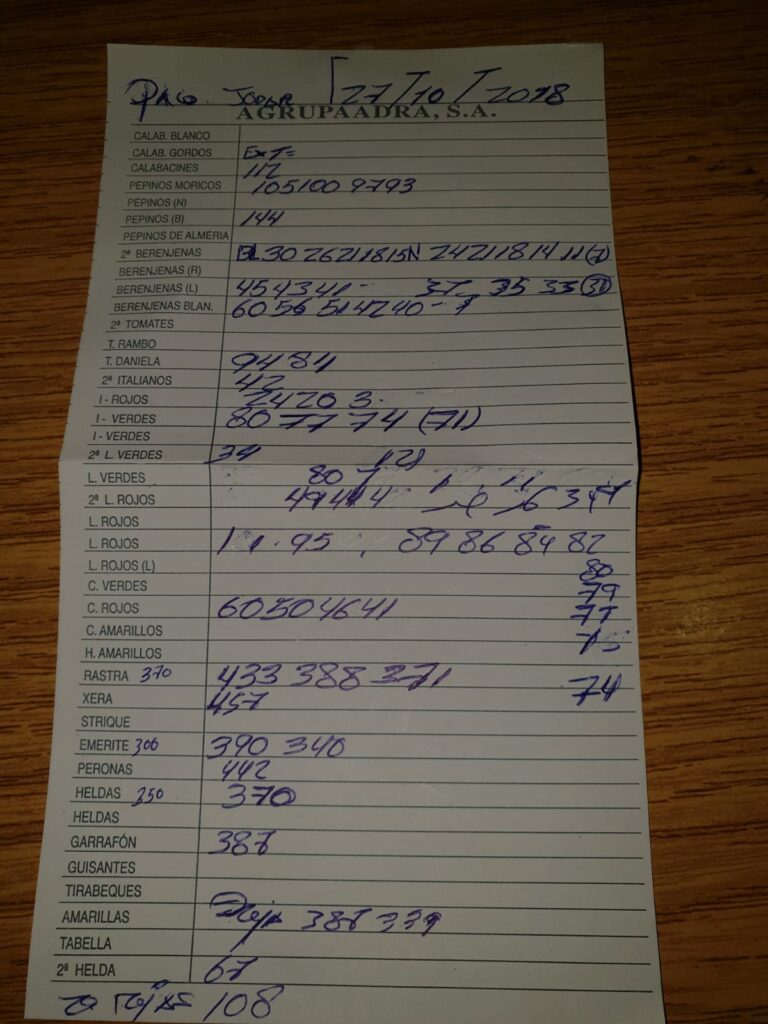 PACO JODAR 27/10/2018
AGRUPAADRA, S.A.
CALAB. BLANCO
CALAB. GORDOS EXT=
CALABACINES 112
PEPINOS MORICOS 105 100 97 93
PEPINOS (N)
PEPINOS (B) 144
PEPINOS DE ALMERIA
2ª BERENJENAS BL 30 26 21 18 15 N 24 21 18 14 11 (7)
BERENJENAS (R)
BERENJENAS (L) 45 43 41 - 37 - 35 33 (31)
BERENJENAS BLAN. 60 56 51 42 40 -
2ª TOMATES
T. RAMBO
T. DANIELA 94 84
2ª ITALIANOS 42
I - ROJOS 24 20 3.
I - VERDES 80 77 74 (71)
I - VERDES
2ª L. VERDES 34
L. VERDES 80
2ª L. ROJOS 49
L. ROJOS
L. ROJOS 95 89 86 84 82
L. ROJOS (L) 80
C. VERDES 79
C. ROJOS 60 50 46 41 77
C. AMARILLOS
H. AMARILLOS
RASTRA 370 433 388 371 74
XERA 457
STRIQUE
EMERITE 306 390 340
PERONAS 442
HELDAS 350 370
HELDAS
GARRAFÓN 387
GUISANTES
TIRABEQUES
AMARILLAS 387 339
TABELLA
2ª HELDA 67
108